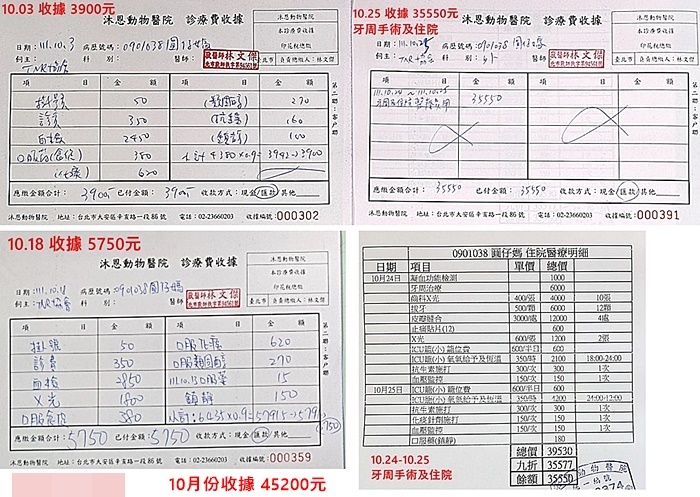 10.03 收據 3900元
沐恩動物醫院 診療費收據
本印花稅總繳
印花稅總繳
日期:111.10.3 病歷號碼:0901038圓仔媽
飼主:TNR協會 科別: 醫師:
獸醫師林文傑
臺北市 負責總繳人:林文傑
項目 金額 項目 金額
掛號 50 270
診察 350 160
血檢 2450 100
口服藥 380 小計 4380x0.9=3942→3900
620
應繳金額合計:3900 已付金額:3900 收款方式:現金 匯款 其他
沐恩動物醫院 地址:台北市大安區辛亥路一段86號 電話:02-23660203 收據編號:000302
第二聯:客戶聯
10.25 收據 35550元
牙周手術及住院
沐恩動物醫院 診療費收據
印花稅總繳
日期:111.10.25 病歷號碼:0901038圓仔媽
飼主:TNR協會 科別: 醫師:
獸醫師林文傑
臺北市 負責總繳人:林文傑
項目 金額 項目 金額
111.10.24~111.10.25
35550
應繳金額合計:35550 已付金額:35550 收款方式:現金 匯款 其他
沐恩動物醫院 地址:台北市大安區辛亥路一段86號 電話:02-23660203 收據編號:000391
第二聯:客戶聯
10.18 收據 5750元
沐恩動物醫院 診療費收據
印花稅總繳
日期:111.10.18 病歷號碼:0901038圓仔媽
飼主:TNR協會 科別: 醫師:
獸醫師林文傑
臺北市 負責總繳人:林文傑
項目 金額 項目 金額
掛號 50 620
診費 350 270
血檢 2850 111.10.13口服藥 15
X光 1800 150
口服 380 小計:6435x0.9=5791.5→579
應繳金額合計:5750 已付金額:5750 收款方式:現金 匯款 其他
沐恩動物醫院 地址:台北市大安區辛亥路一段86號 電話:02-23660203 收據編號:000359
第二聯:客戶聯
10月份收據 45200元
0901038 圓仔媽 住院醫療明細
日期 項目 單價 總價
10月24日 凝血功能檢測 1000
牙周治療 6000
齒科X光 400/張 4000 10張
拔牙 500/顆 6000 12顆
皮瓣縫合 3000/處 12000 4處
止痛貼片(12) 600
X光 600/張 1200 2張
ICU籠(小) 籠位費 600/半日 600
ICU籠(小) 氧氣給予及恆溫 350/時 2100 18:00-24:00
抗生素施打 300/次 300 1次
血壓監控 150/次 150 1次
10月25日 ICU籠(小) 籠位費 600/半日 600
ICU籠(小) 氧氣給予及恆溫 350/時 4200 24:00-12:00
抗生素施打 300/次 300 1次
化痰針劑施打 150/次 150 1次
血壓監控 150/次 150 1次
口服藥(鎮靜) 180
總價 39530
九折 35577
餘款 35550
10.24-10.25
牙周手術及住院